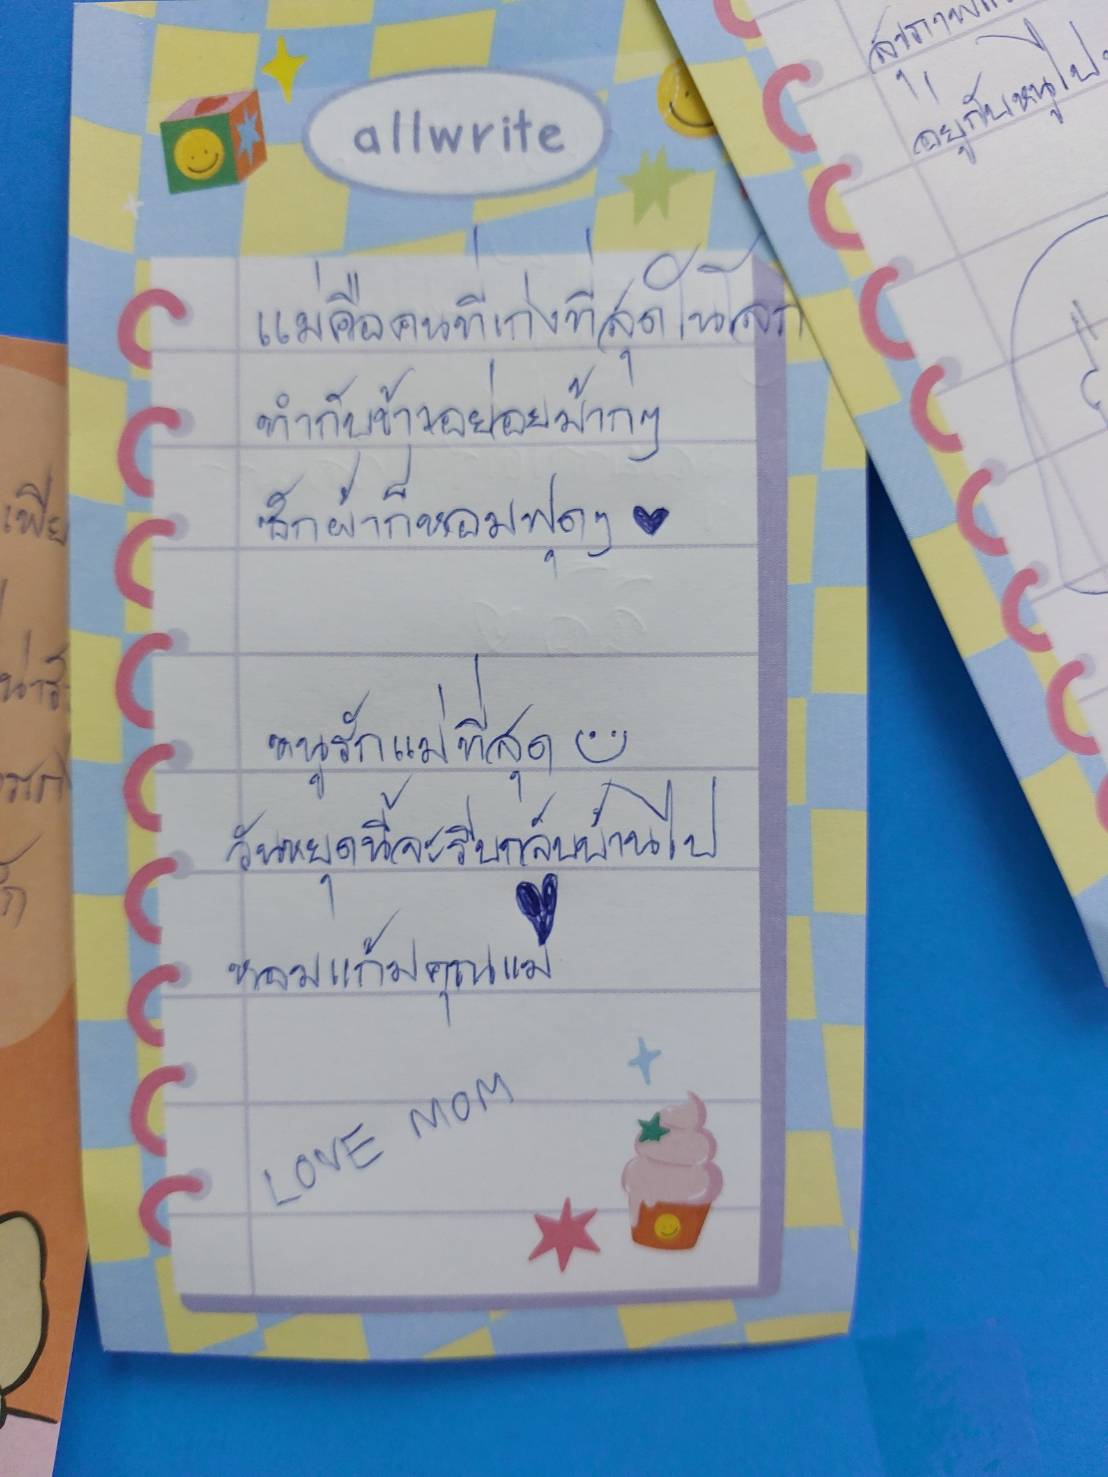 allwrite
แม่คือคนที่เก่งที่สุดในโลก
ทำกับข้าวอย่อยม้ากๆ
ซักผ้าก็หอมฟุดๆ
หนูรักแม่ที่สุด
วันหยุดนี้จะรีบกลับบ้านไป
หอมแก้มคุณแม่
LOVE MOM
อยู่กับหนูไป